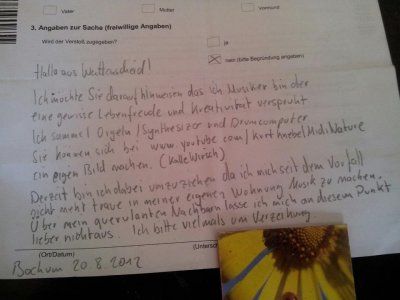 Vater Mutter Vormund
3. Angaben zur Sache (freiwillige Angaben)
Wird der Verstoß zugegeben? ja
nein (bitte Begründung angeben)
Hallo aus Wattenscheid!
Ich möchte Sie darauf hinweisen das ich Musiker bin der
eine gewisse Lebensfreude und Kreativität versprüht
Ich sammel Orgeln/Synthesizer und Drumcomputer
Sie können sich bei www.youtube.com/kurthnebelMidiNature
ein eigen Bild machen. (Kalle Wirsch)
Derzeit bin ich dabei umzuziehen da ich mich seit dem Vorfall
nicht mehr traue in meiner eigenen Wohnung Musik zu machen.
Über mein querulanten Nachbarn lasse ich mich an diesem Punkt
lieber nicht aus. Ich bitte vielmals um Verzeihung
(Ort/Datum) (Untersch
Bochum 20.8.2012